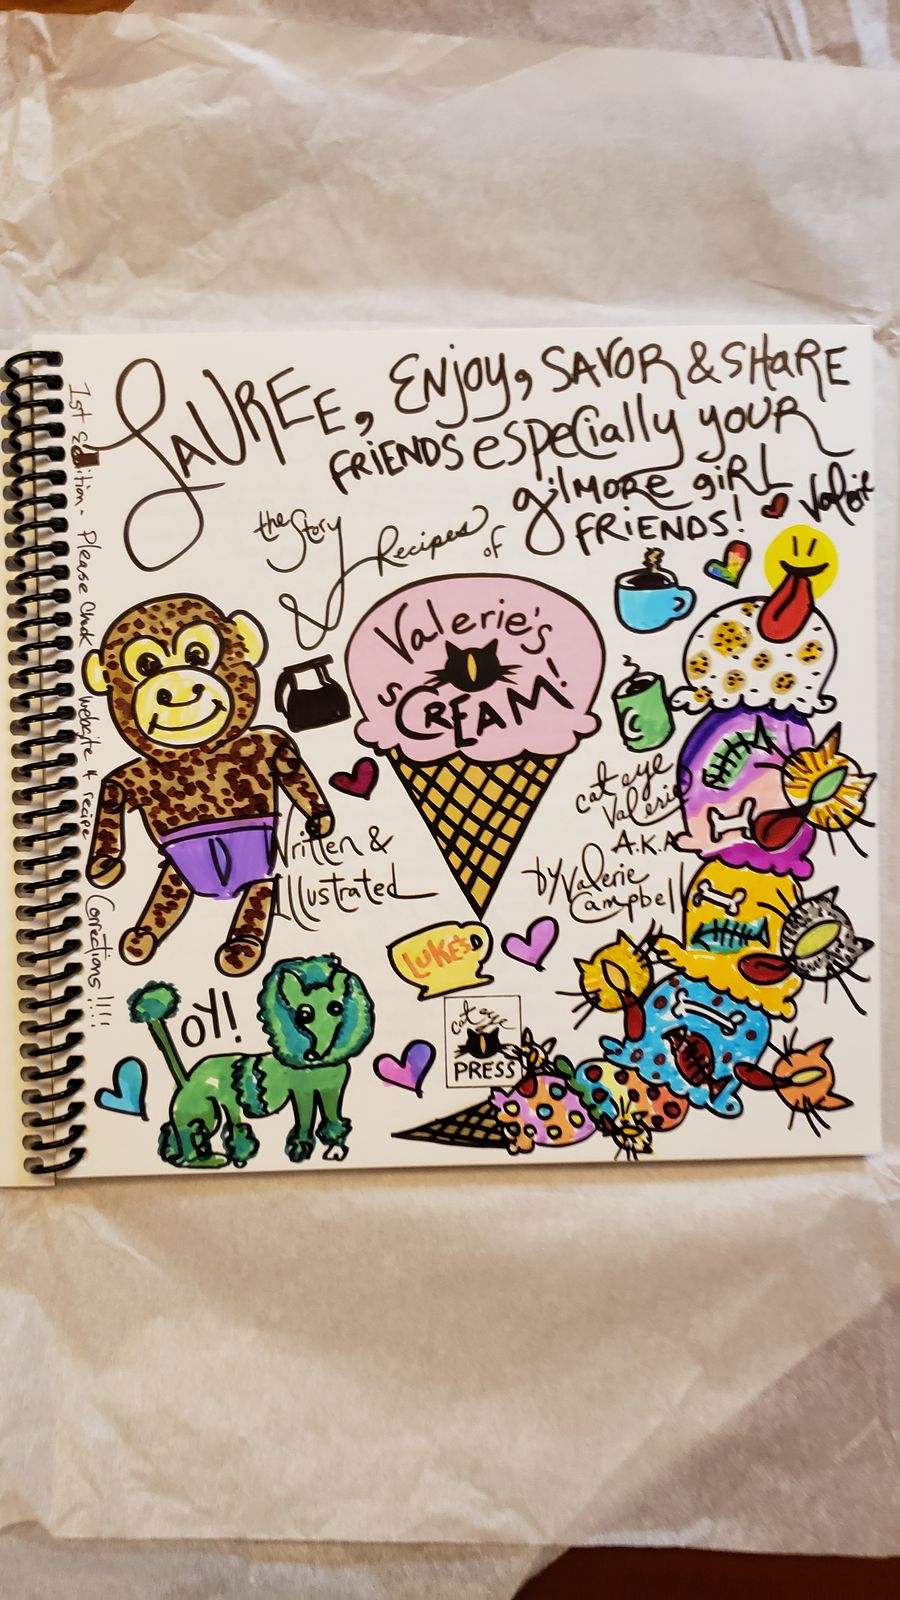 LAUREE, ENjoy, SAVOR & SHARE
FRiENDS especially your
gilmore giRL
FRiENDS! Valerie
the Story
& Recipes of
Valerie's
sCREAM!
cat eye
Valerie
A.K.A
by Valerie
Campbell
Written &
Illustrated
LUKE'S
OY!
cat eye
PRESS
1st Edition - Please Check website 4 recipe Corrections!!!!